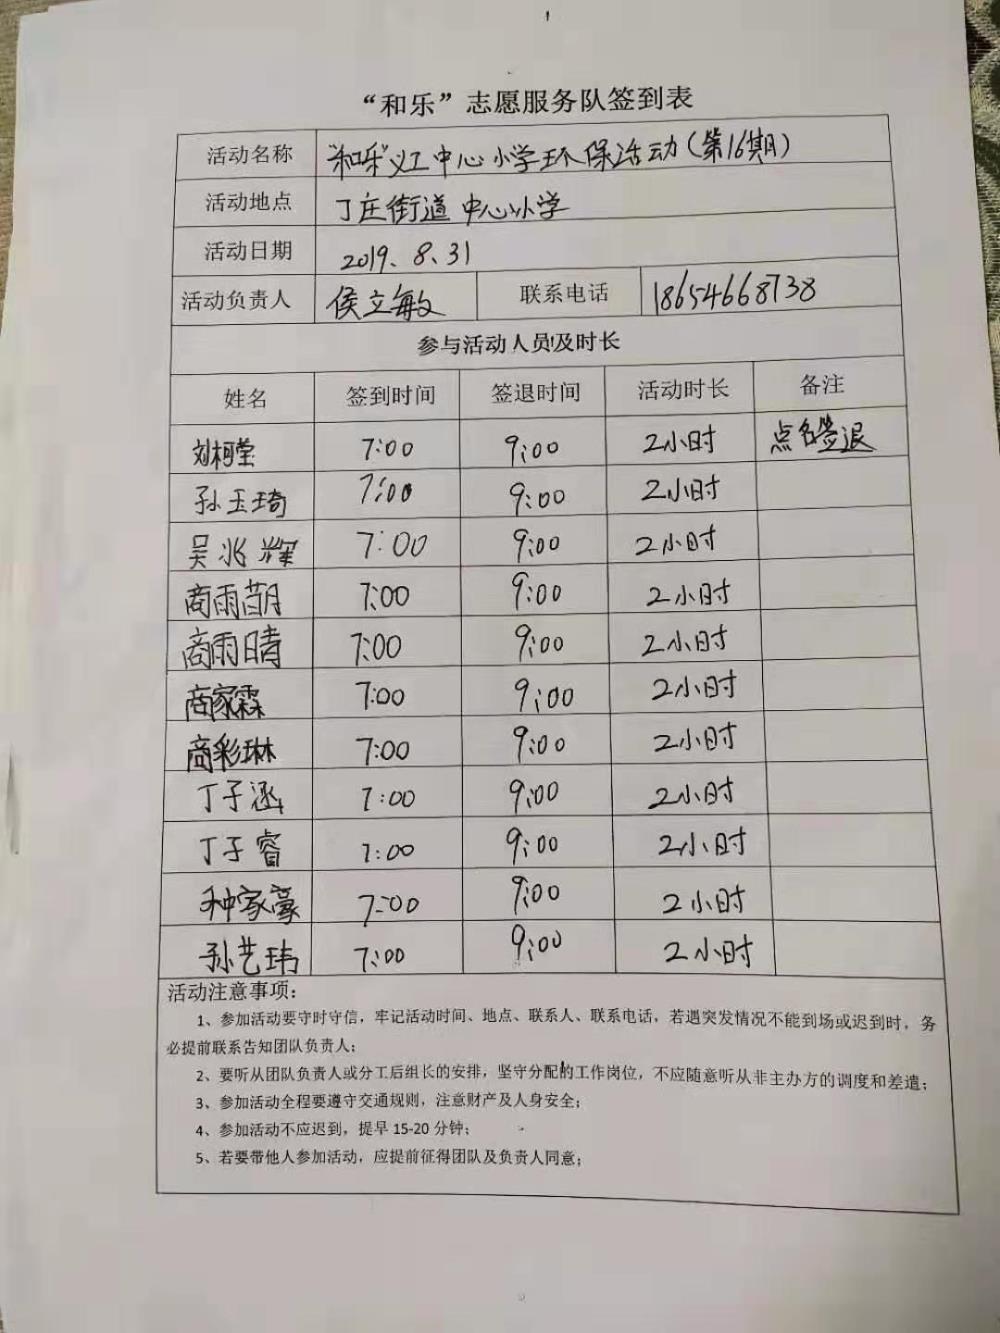 “和乐”志愿服务队签到表
活动名称 “和乐”义工中心小学环保活动(第16期)
活动地点 丁庄街道中心小学
活动日期 2019.8.31
活动负责人 侯立敏 联系电话 18654668738
参与活动人员及时长
姓名 签到时间 签退时间 活动时长 备注
刘柯莹 7:00 9:00 2小时 点名签退
孙玉琦 7:00 9:00 2小时
吴兆辉 7:00 9:00 2小时
商雨萌 7:00 9:00 2小时
商雨晴 7:00 9:00 2小时
商家霖 7:00 9:00 2小时
商彩琳 7:00 9:00 2小时
丁子涵 7:00 9:00 2小时
丁子睿 7:00 9:00 2小时
种家豪 7:00 9:00 2小时
孙艺玮 7:00 9:00 2小时
活动注意事项:
1、参加活动要守时守信，牢记活动时间、地点、联系人、联系电话，若遇突发情况不能到场或迟到时，务
必提前联系告知团队负责人；
2、要听从团队负责人或分工后组长的安排，坚守分配的工作岗位，不应随意听从非主办方的调度和差遣；
3、参加活动全程要遵守交通规则，注意财产及人身安全；
4、参加活动不应迟到，提早 15-20 分钟；
5、若要带他人参加活动，应提前征得团队及负责人同意；